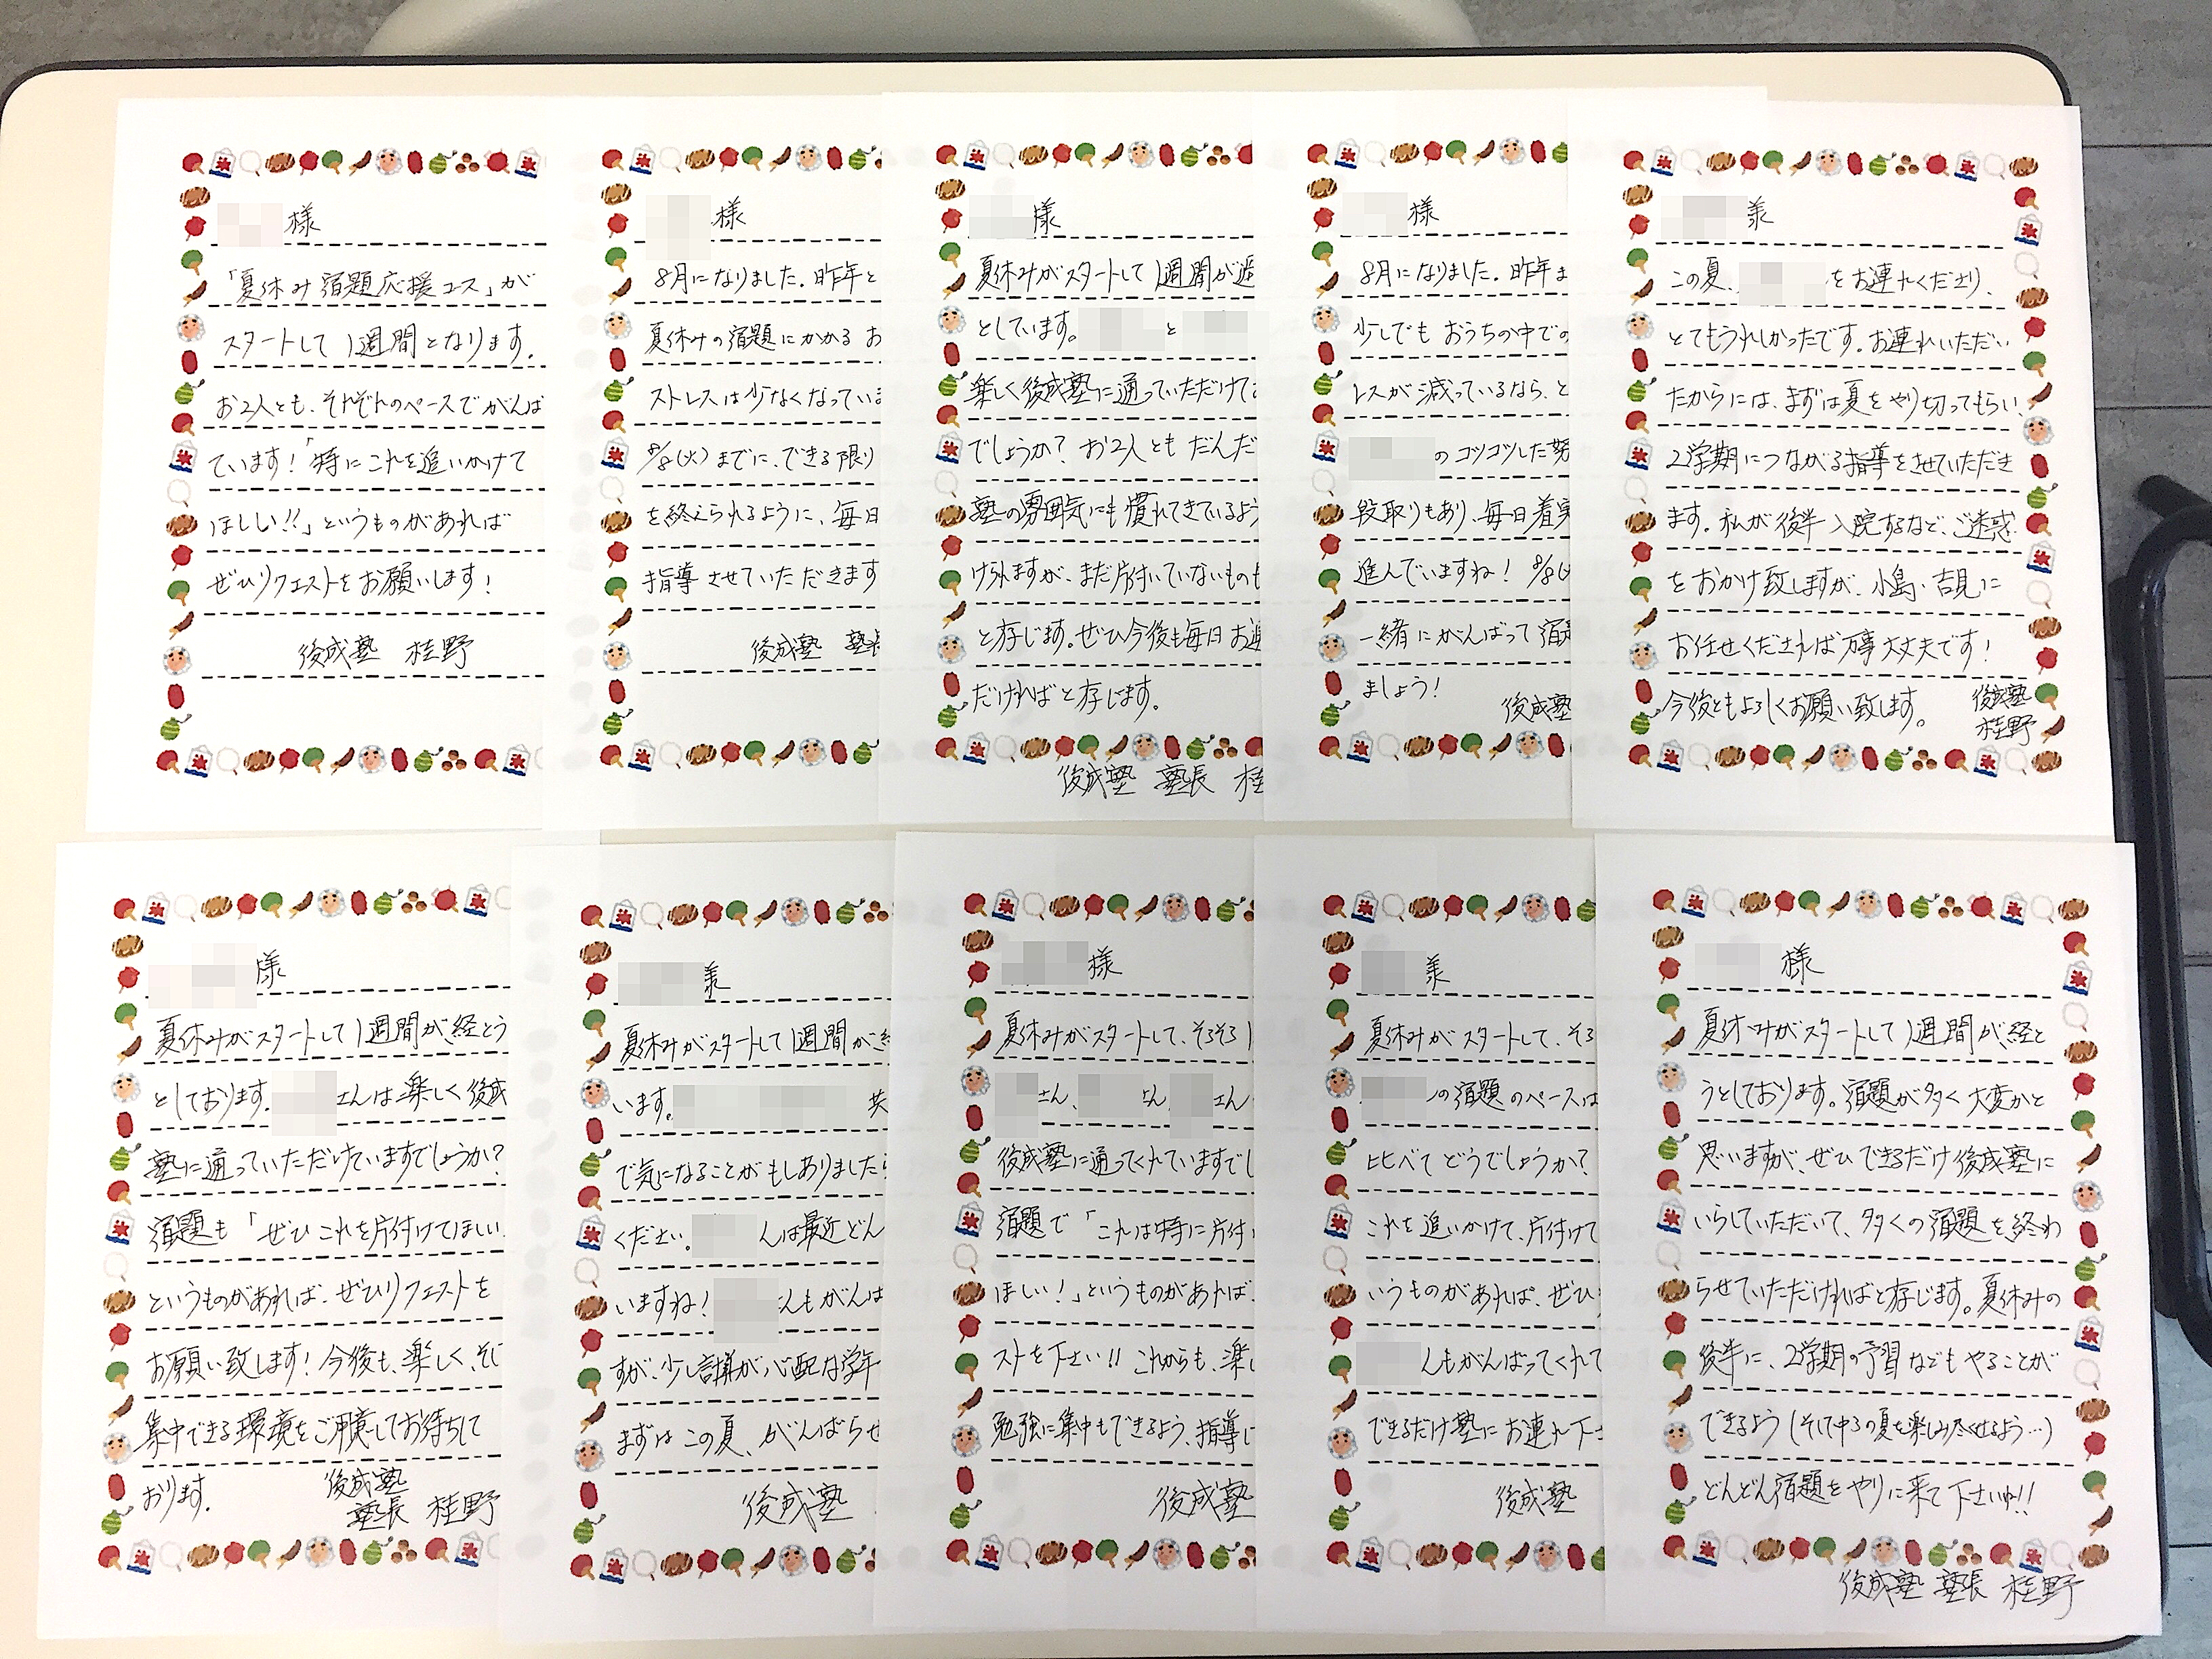 様
「夏休み宿題応援コース」が
スタートして1週間となります。
お2人とも、それぞれのペースでがんば
ています!「特にこれを追いかけて
ほしい!!」というものがあれば
ぜひリクエストをお願いします!
後成塾 桂野
様
8月になりました。昨年と
夏休みの宿題にかかる お
ストレスは少なくなっていま
8/8(火)までに、できる限り
を終えられるように、毎日
指導させていただきます
後成塾 塾長
様
夏休みがスタートして1週間が過
としています。 と
楽しく後成塾に通っていただけて
でしょうか? お2人とも だんだ
塾の雰囲気にも慣れてきているよう
けられますが、まだ片付いていないものも
と存じます。ぜひ今後も毎日お連
だければと存じます。
後成塾 塾長 桂
様
8月になりました。昨年ま
少しでも おうちの中での
レスが減っているなら、と
のコツコツした努
段取りもあり、毎日着実
進んでいますね! 8/8(火
一緒にがんばって宿題
ましょう!
後成塾
様
この夏、 をお連れくださり、
とてもうれしかったです。お連れいただい
たからには、まずは夏をやり切ってもらい、
2学期につながる指導をさせていただき
ます。私が後半入院するなど、ご迷惑
をおかけ致しますが、小島・吉見に
お任せくだされば万事大丈夫です!
今後ともよろしくお願い致します。
後成塾
桂野
様
夏休みがスタートして1週間が経とう
としております。 さんは楽しく後成
塾に通っていただけていますでしょうか?
宿題も「ぜひこれを片付けてほしい
というものがあれば、ぜひリクエストを
お願い致します! 今後も、楽しく、そし
集中できる環境をご用意してお待ちして
おります。
後成塾
塾長 桂野
様
夏休みがスタートして1週間が経
います。 共
で気になることがもしありましたら
ください。 んは最近どん
いますね! んもがんば
すが、少し計算が心配な学年
まずはこの夏、がんばらせ
後成塾
様
夏休みがスタートして、そろそろ1
さん、 さん、 さん
後成塾に通ってくれていますでし
宿題で「これは特に片付
ほしい!」というものがあれば、
ストを下さい!! これからも、楽し
勉強に集中もできるよう、指導し
後成塾
様
夏休みがスタートして、そろ
の宿題のペースは
比べてどうでしょうか?
これを追いかけて、片付けて
いうものがあれば、ぜひ
んもがんばってくれて
できるだけ塾にお連れ下さ
後成塾
様
夏休みがスタートして1週間が経と
うとしております。宿題が多く大変かと
思いますが、ぜひできるだけ後成塾に
いらしていただいて、多くの宿題を終わ
らせていただければと存じます。夏休みの
後半に、2学期の予習などもやることが
できるよう(そして中3の夏を楽しみ尽くせるよう…)
どんどん宿題をやりに来て下さいね!!
後成塾 塾長 桂野